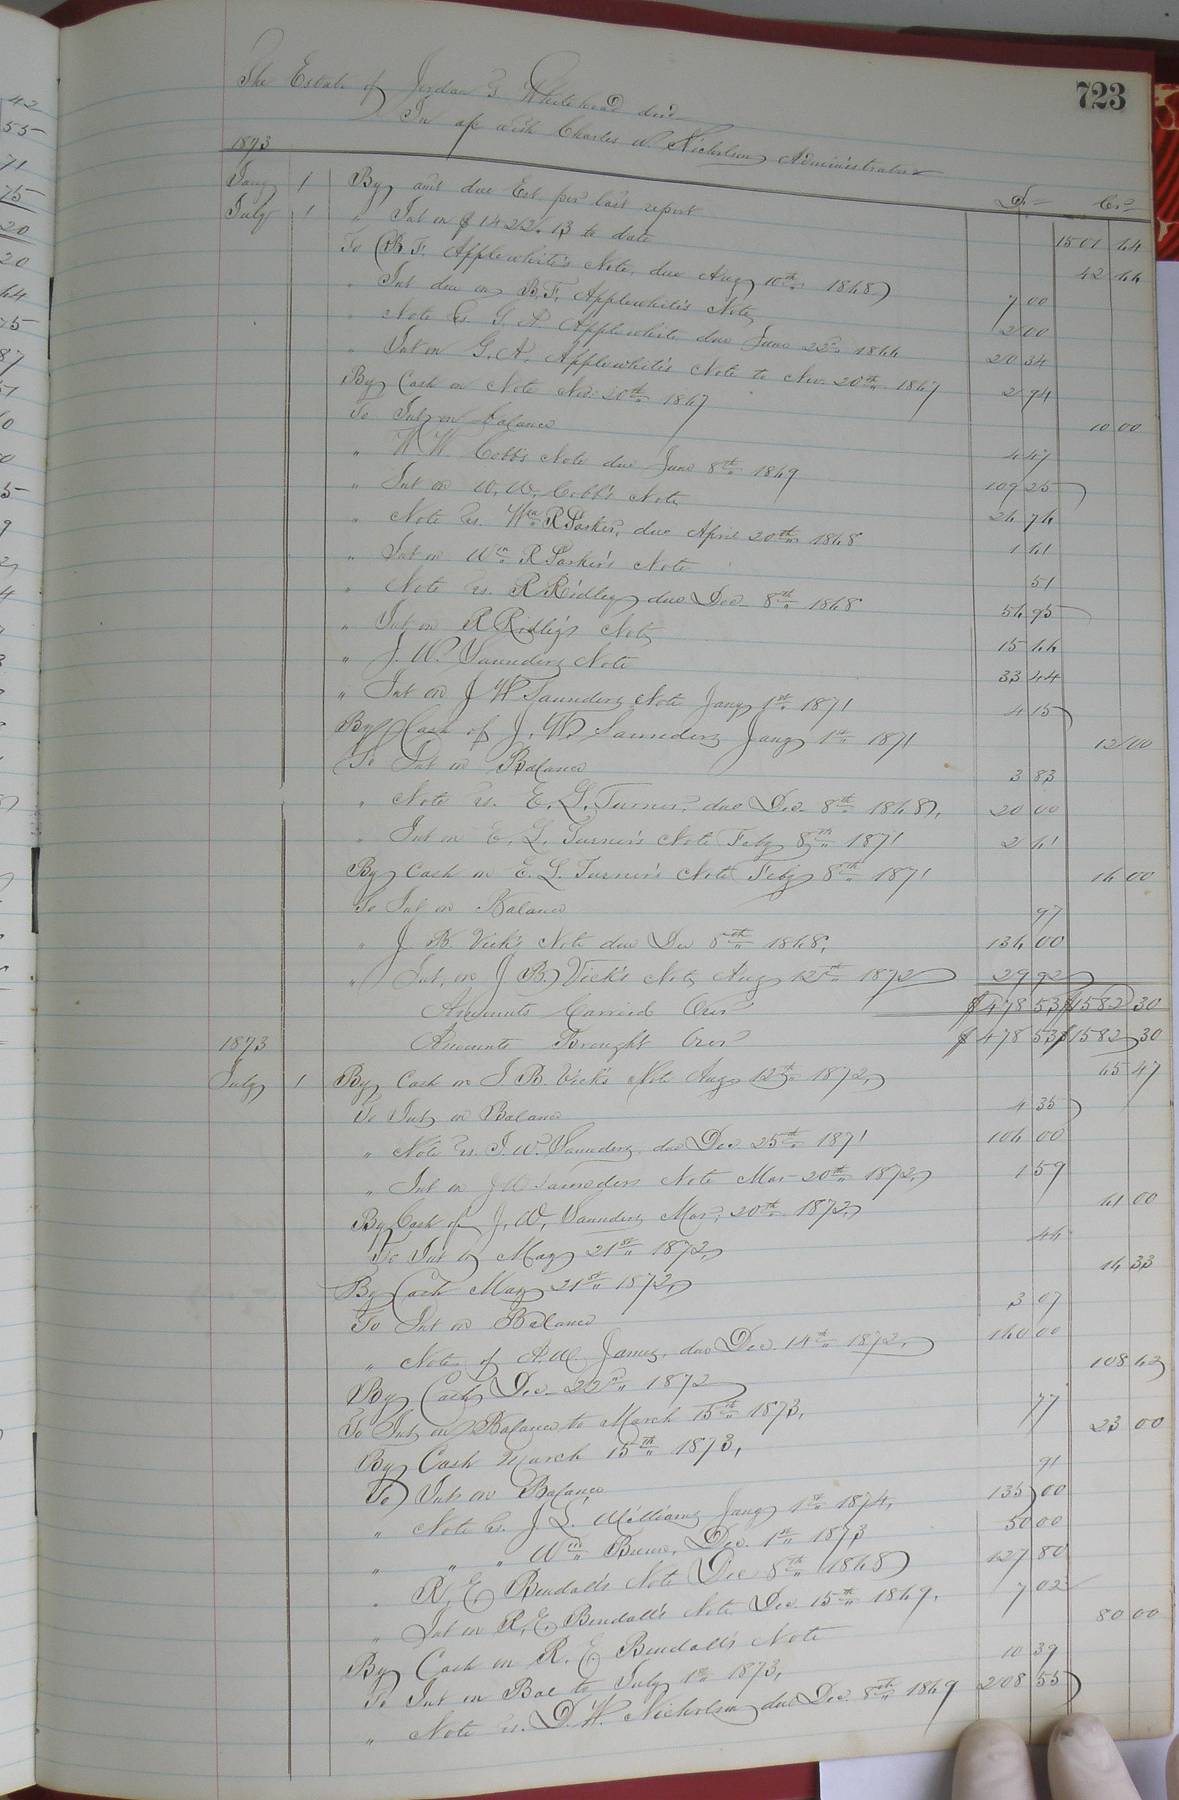 723
The Estate of Jordan B Whitehead decd
In a/c with Charles W Nicholson Administrator
1873 Dr Crs
Jany 1 By amt due Est. per last report 1501 64
July 1 " Int on $1422.13 to date 42 66
To B F. Applewhite's Note, due Aug 10th 1868 7 00
" Int due on B.F. Applewhite's Note 2 00
" Note vs G. A. Applewhite due June 22d 1866 20 34
" Int on G. A. Applewhite's Note to Nov. 20th 1867 2 94
By Cash on Note Nov. 20th 1867 10 00
To Int, on balance 4 47
" W. W. Cobb's Note due June 8th 1869 109 25
" Int on W. W. Cobb's Note 26 76
" Note vs. Wm R Parker, due April 20th 1868 1 61
" Int on Wm R Parker's Note 51
" Note vs. R Ridley due Dec 8th 1868 56 95
" Int on R Ridley's Note 15 66
" J. W. Saunders Note 33 44
" Int on J W Saunders Note Jany 1st 1871 4 15
By Cash of J. W. Saunders Jany 1st 1871 12 00
To Int on Balance 3 83
" Note vs. E. L. Turner, due Dec. 8th 1868, 20 00
" Int on E. L. Turner's Note Feby 8th 1871 2 61
By Cash on E. L. Turner's Note Feby 8th 1871 16 00
To Int on Balance 97
" J. B. Vick's Note due Dec 8th 1868, 136 00
" Int, on J. B. Vick's Note Aug 12th 1872 29 92
Amounts Carried Over $478 53 $1582 30
1873 Amounts Brought Over $478 53 $1582 30
July 1 By Cash on J. B. Vick's Note Aug 12th 1872, 65 47
To Int, on Balance 4 35
" Note vs. J. W. Saunders, due Dec 25th 1871 106 00
" Int on J W Saunders Note Mar 20th 1872, 1 59
By Cash of J. W. Saunders Mar, 20th 1872, 61 00
To Int to May 21st 1872, 44
By Cash May 21st 1872, 16 33
To Int on Balance 3 07
" Note of A. W. James, due Dec. 14th 1872, 160 00
By Cash Dec 22d 1872 108 62
To Int on Balance to March 15th 1873, 77
By Cash March 15th 1873, 23 00
To Int on Balance 91
" Note vs. J. L. Williams Jany 1st 1874, 135 00
" " " Wm Dec. 1st 1873 50 00
" R. E. Bendall's Note Dec 8th 1868 127 80
" Int on R. E. Bendall's Note Dec 15th 1869, 7 02
By Cash on R. E. Bendall's Note 80 00
To Int on Bal to July 1st 1873, 10 39
" Note vs. D. W. Nicholson due Dec 8th 1869 208 55